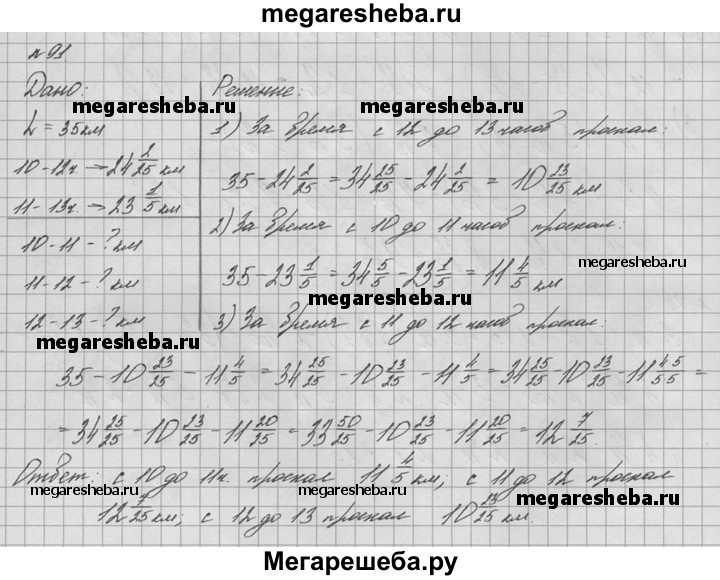 megaresheba.ru
№91
Дано: Решение:
megaresheba.ru megaresheba.ru
L = 35км 1) За время с 12 до 13 часов проехал:
10-12ч. → 24 2/25 км 35 - 24 2/25 = 34 25/25 - 24 2/25 = 10 23/25 км
11-13ч. → 23 1/5 км 2) За время с 10 до 11 часов проехал:
10-11 - ? км 35 - 23 1/5 = 34 5/5 - 23 1/5 = 11 4/5 км
11-12 - ? км megaresheba.ru
megaresheba.ru
12-13 - ? км 3) За время с 11 до 12 часов проехал:
megaresheba.ru
35 - 10 23/25 - 11 4/5 = 34 25/25 - 10 23/25 - 11 4/5 = 34 25/25 - 10 23/25 - 11 4·5/5·5 =
= 34 25/25 - 10 23/25 - 11 20/25 = 33 50/25 - 10 23/25 - 11 20/25 = 12 7/25
Ответ: с 10 до 11ч. проехал 11 4/5 км; с 11 до 12 проехал
megaresheba.ru megaresheba.ru megaresheba.ru
12 7/25 км; с 12 до 13 проехал 10 23/25 км.
Мегарешеба.ру